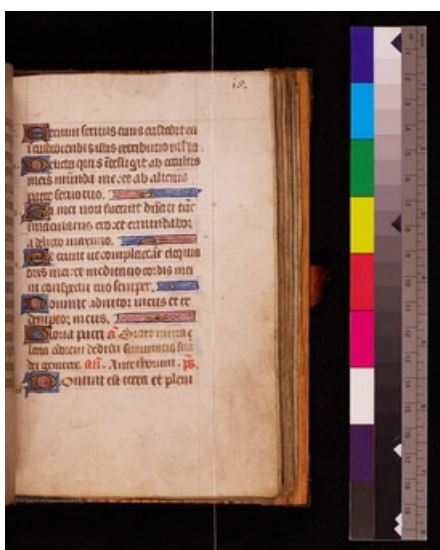 Etenim seruus tuus custodit ea
i custodiendis illis retributio
Delicta quis ītelligit ab occultis
meis munda me: et ab alienis
parce seruo tuo.
Si mei non fuerint tūc
inmaculatus ero: et emundabor
a delicto maximo.
Et erunt ut complaceāt eloquia
oris mei: et meditatio cordis mei
in conspectu tuo semper.
Domine adiutor meus et re
demptor meus.
Gloria patri a͞ Sicut mirra e
lecta odorem dedisti suauitatis
dei genitrix. añ. Ante thorum. ps.
Domini est terra et pleni